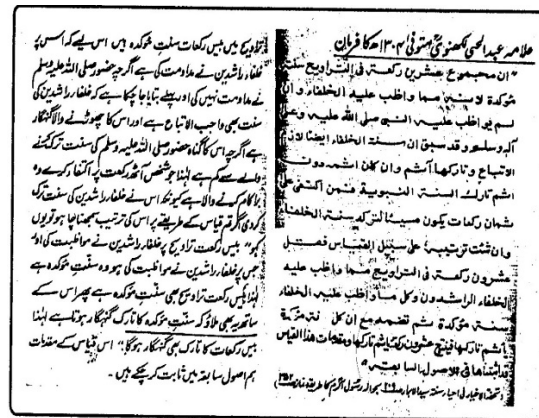 علامہ عبدالحی لکھنویؒ متوفی ۱۳۰۴ھ کا فرمان
"ان مجموع عشرین رکعة فی التراویح سنة
مؤکدة لانہ مما واظب علیہ الخلفاء وان
لم یواظب علیہ النبی صلی اللہ علیہ وعلی
آلہ وسلم وقد سبق ان سنة الخلفاء ایضا لازم
الاتباع وتارکھا آثم وان کان اثمہ دون
اثم تارک السنة النبویة فمن اکتفی علی
ثمان رکعات یکون مسیئا لترکہ سنة الخلفاء
وان شئت ترتیبہ علی سبیل القیاس فقل
عشرون رکعة فی التراویح مما واظب علیہ
الخلفاء الراشدون وکل ما واظب علیہ الخلفاء
سنة مؤکدة ثم تضمہ مع ان کل سنة مؤکدة
آثم تارکھا فینتج عشرون رکعة یأثم تارکھا ومقدمات ھذا القیاس
قد اثبتناھا فی الاصول السابقة"
تراویح میں بیس رکعات سنت مؤکدہ ہیں اس لیے کہ اس پر
خلفاء راشدین نے مداومت کی ہے اگرچہ حضور صلی اللہ علیہ وسلم
نے مداومت نہیں کی اور پہلے بتایا جا چکا ہے کہ خلفاء راشدین کی
سنت بھی واجب الاتباع ہے اور اس کا چھوڑنے والا گنہگار
ہے اگرچہ اس کا گناہ حضور صلی اللہ علیہ وسلم کی سنت ترک کرنے
والے سے کم ہے لہٰذا جو شخص آٹھ رکعت پر اکتفا کرے وہ
برا کام کرنے والا ہے کیونکہ اس نے خلفاء راشدین کی سنت ترک
کردی اگر تم قیاس کے طریقے پر اس کی ترتیب سمجھنا چاہو تو یوں
کہو "بیس رکعت تراویح پر خلفاء راشدین نے مواظبت کی اور
جس پر خلفاء راشدین نے مواظبت کی ہو وہ سنت مؤکدہ ہے
لہٰذا بیس رکعت تراویح بھی سنت مؤکدہ ہے پھر اس کے
ساتھ یہ بھی ملاؤ کہ سنت مؤکدہ کا تارک گنہگار ہوتا ہے لہٰذا
بیس رکعات کا تارک بھی گنہگار ہوگا" اس قیاس کے مقدمات
ہم اصول سابقہ میں ثابت کر چکے ہیں۔